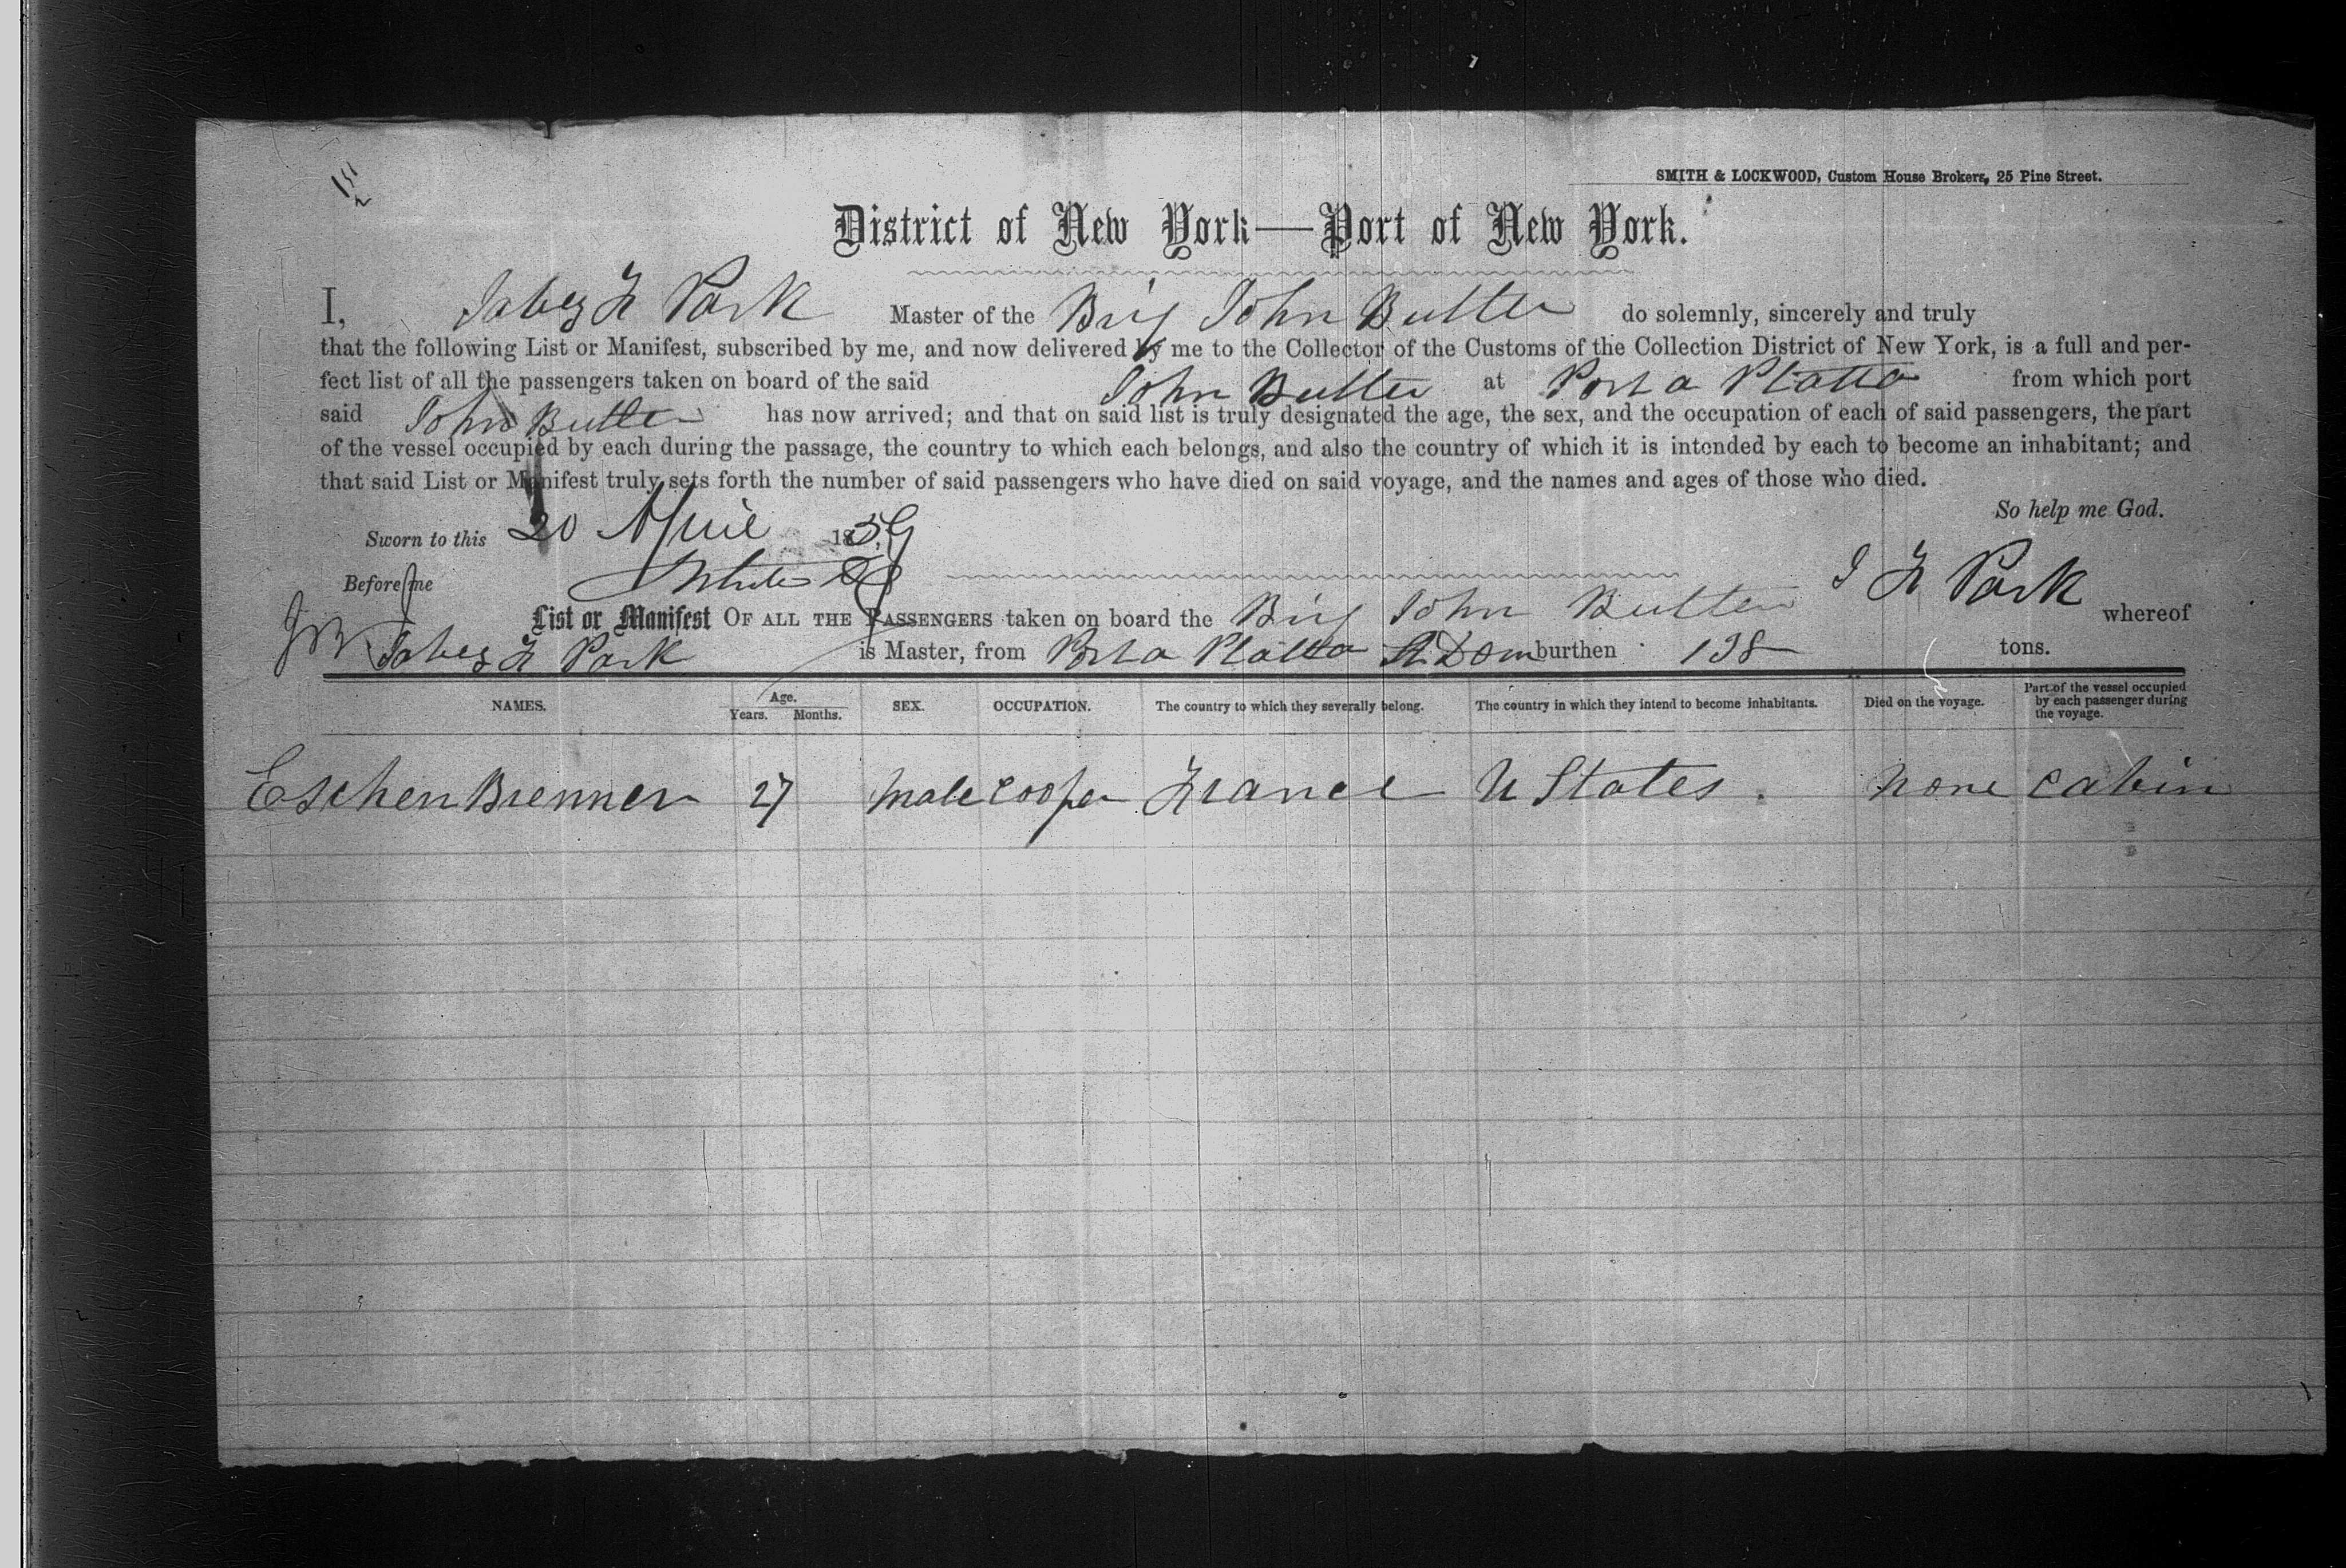 SMITH & LOCKWOOD, Custom House Brokers, 25 Pine Street.
District of New York—Port of New York.
I, Jabez F Park Master of the Brig John Butler do solemnly, sincerely and truly
that the following List or Manifest, subscribed by me, and now delivered by me to the Collector of the Customs of the Collection District of New York, is a full and per-
fect list of all the passengers taken on board of the said John Butler at Porta Platta from which port
said John Butler has now arrived; and that on said list is truly designated the age, the sex, and the occupation of each of said passengers, the part
of the vessel occupied by each during the passage, the country to which each belongs, and also the country of which it is intended by each to become an inhabitant; and
that said List or Manifest truly sets forth the number of said passengers who have died on said voyage, and the names and ages of those who died.
So help me God.
Sworn to this 20 April 1859
Before me J F Park
List or Manifest OF ALL THE PASSENGERS taken on board the Brig John Butler whereof
Jabez F Park is Master, from Porta Platta St Dom burthen 138 tons.
NAMES. Age. Years. Months. SEX. OCCUPATION. The country to which they severally belong. The country in which they intend to become inhabitants. Died on the voyage. Part of the vessel occupied by each passenger during the voyage.
Eschen Brenner 27 Male Cooper France U States. None Cabin